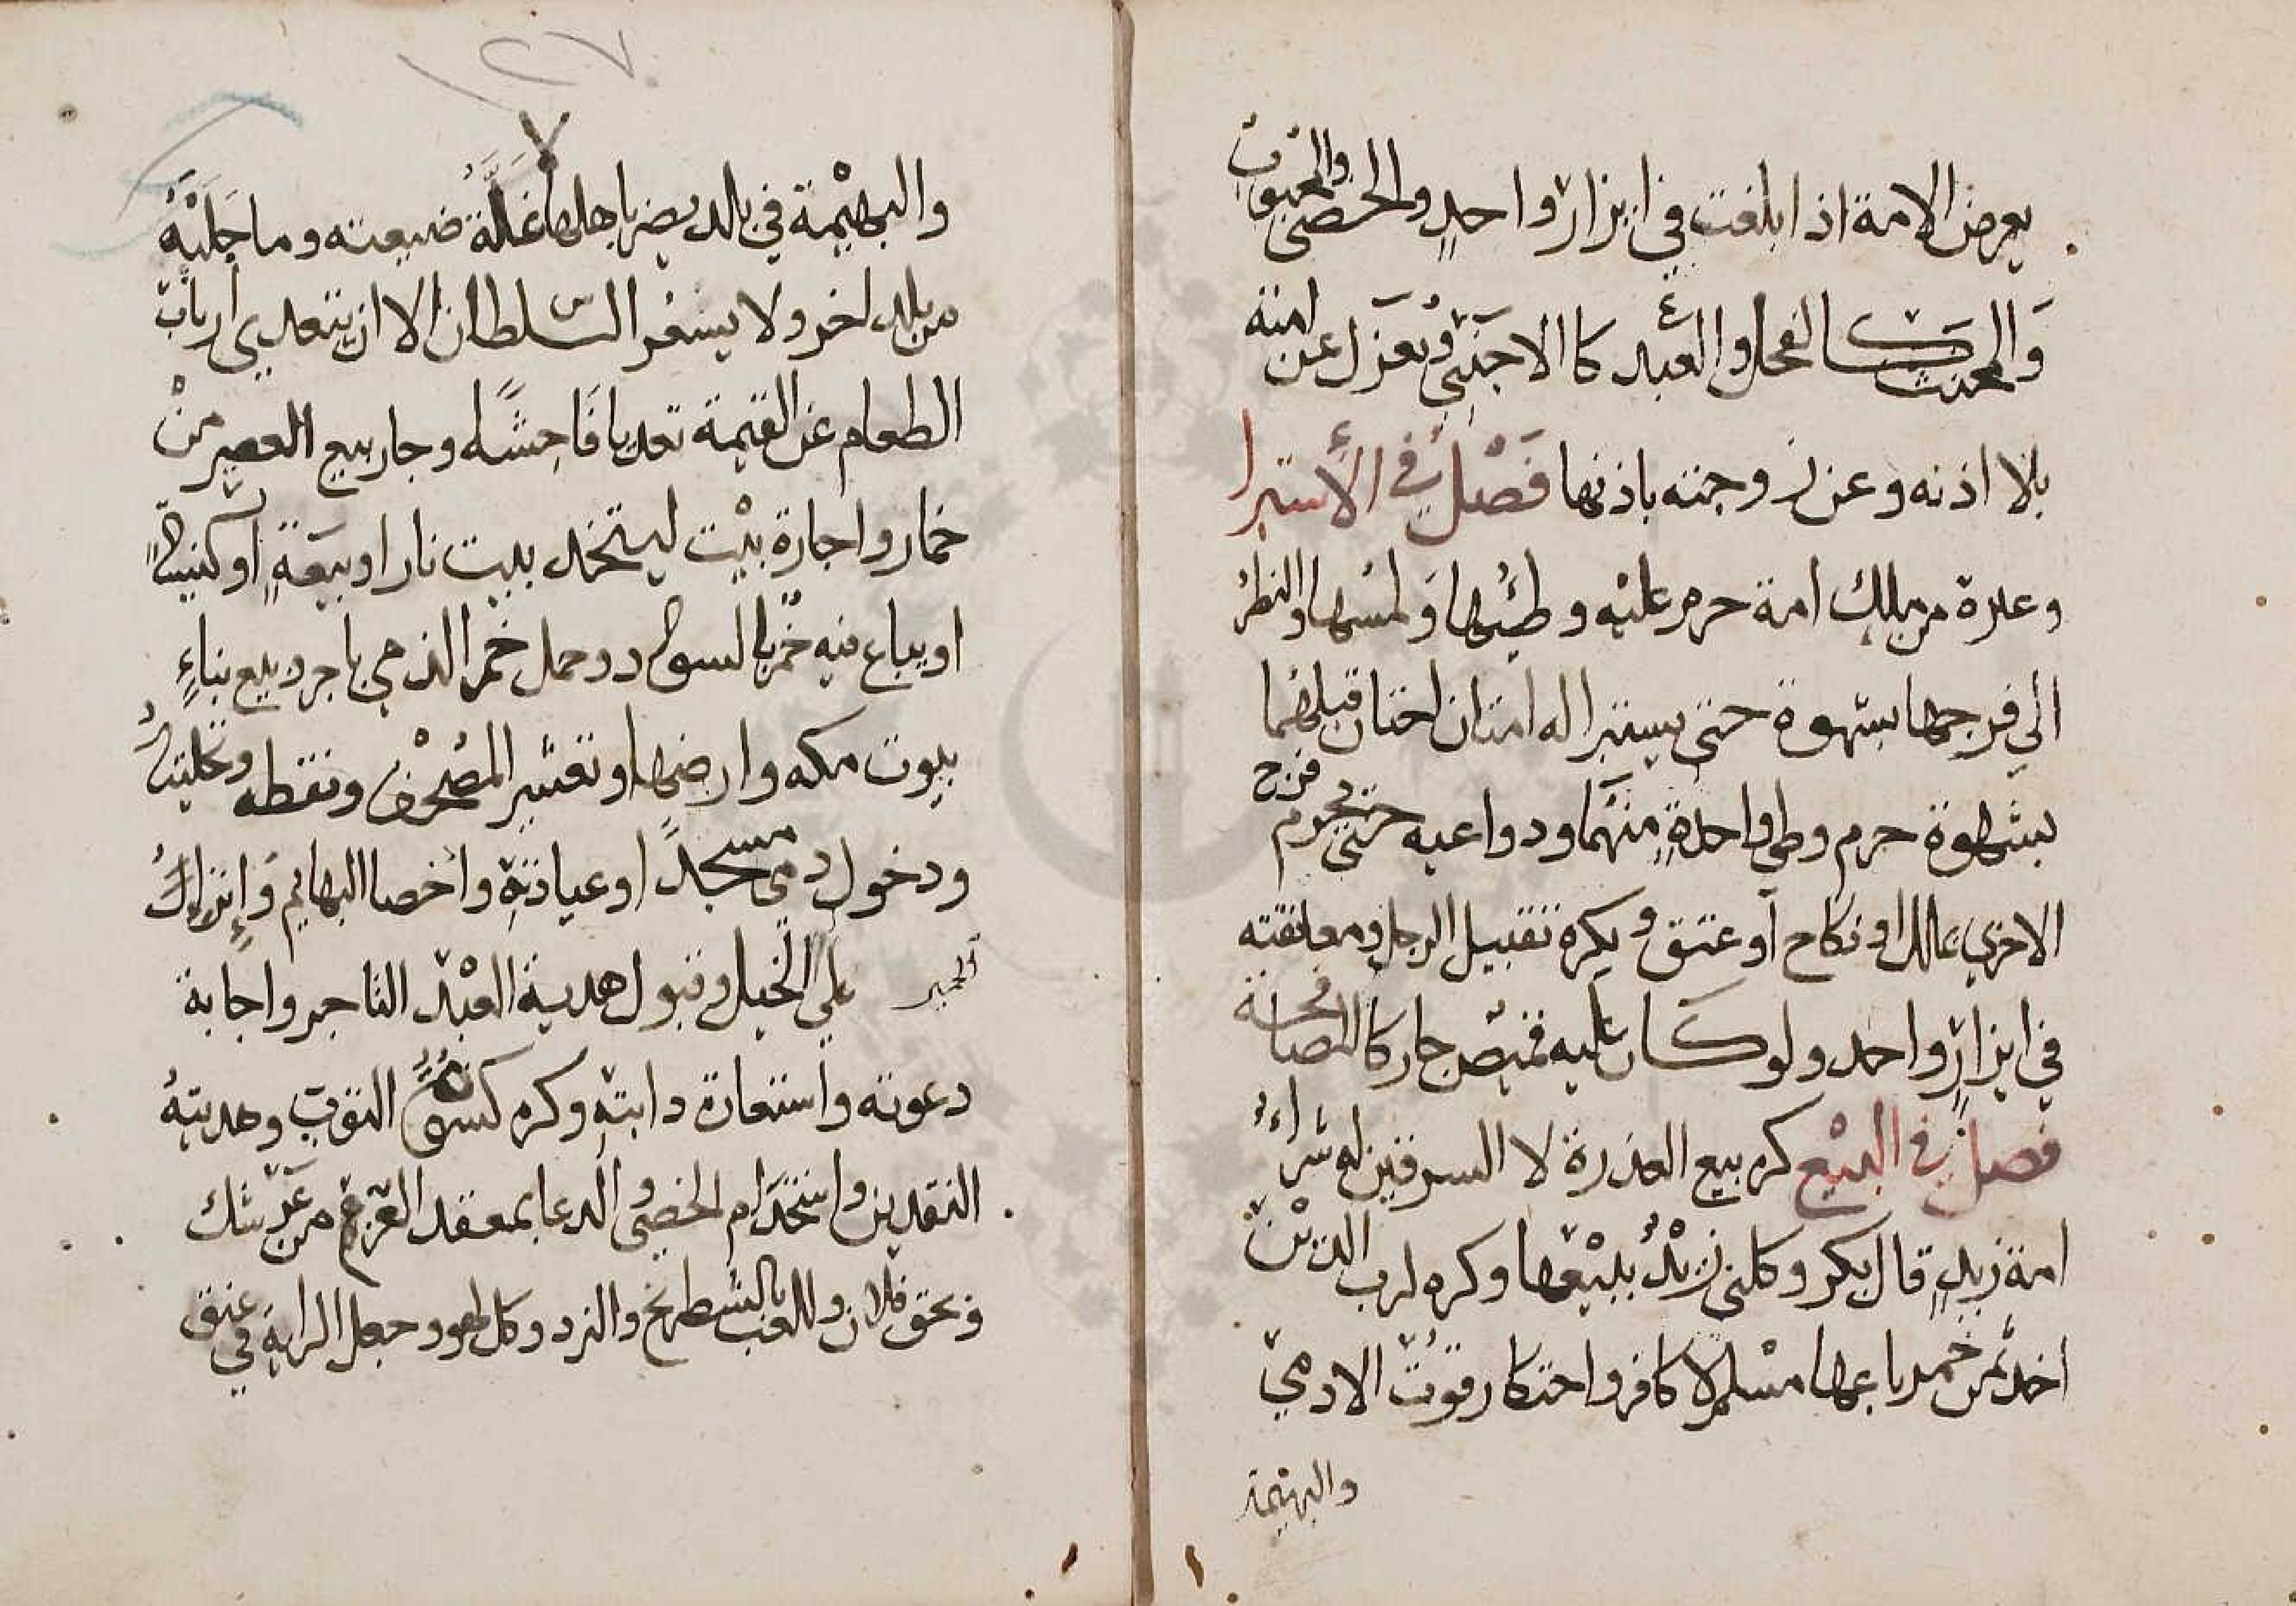 يعرض الامة اذا بلغت في ازار واحد والخصي والمجبوب
والمخنث كالفحل والعبد كالاجنبي ويعزل عن امته
بلا اذنه وعن زوجته باذنها فصل في الأستبرا
وعدة من ملك امة حرم عليه وطئها ولمسها والنظر
الي فرجها بشهوة حتى يستبرا له امتان اختان قبلهما
بشهوة حرم وطي واحدة منهما ودواعيه حتى يحرم فرج
الاخري بملك او نكاح او عتق ويكره تقبيل الرجل ومعانقته
في ايزار واحد ولو كان عليه قميص جاز كالمصافحة
فصل في البيع كره بيع العذرة لا السرقين له شراء
امة زيد قال بكر وكلني زيد ببيعها وكره لرب الدين
اخذ ثمن خمر باعها مسلم لا كافر واحتكار قوت الادمي
والبهيمة
١٢٧
والبهيمة في بلد يضر باهلها لا غلة ضيعته وما جلبه
من بلد اخر ولا يسعر السلطان الا ان يتعدي ارباب
الطعام عن القيمة تعديا فاحشا وجاز بيع العصير من
خمار واجارة بيت ليتخذ بيت نار او بيعة او كنيسة
او يباع فيه خمر بالسواد وحمل خمر الذمي باجر وبيع بناء
بيوت مكه وارضها وتعشير المصحف ونقطه وتحليته
ودخول ذمي مسجد او عيادته واخصا البهايم وإنزاء
الحمير علي الخيل وقبول هدية العبد التاجر واجابة
دعوته واستعارة دابته وكره كسوته الثوب وهديته
النقدين واستخدام الخصي والدعا بمعقد العز من عرشك
وبحق فلان واللعب بالشطرنج والنرد وكل لهو وجعل الراية في عنق